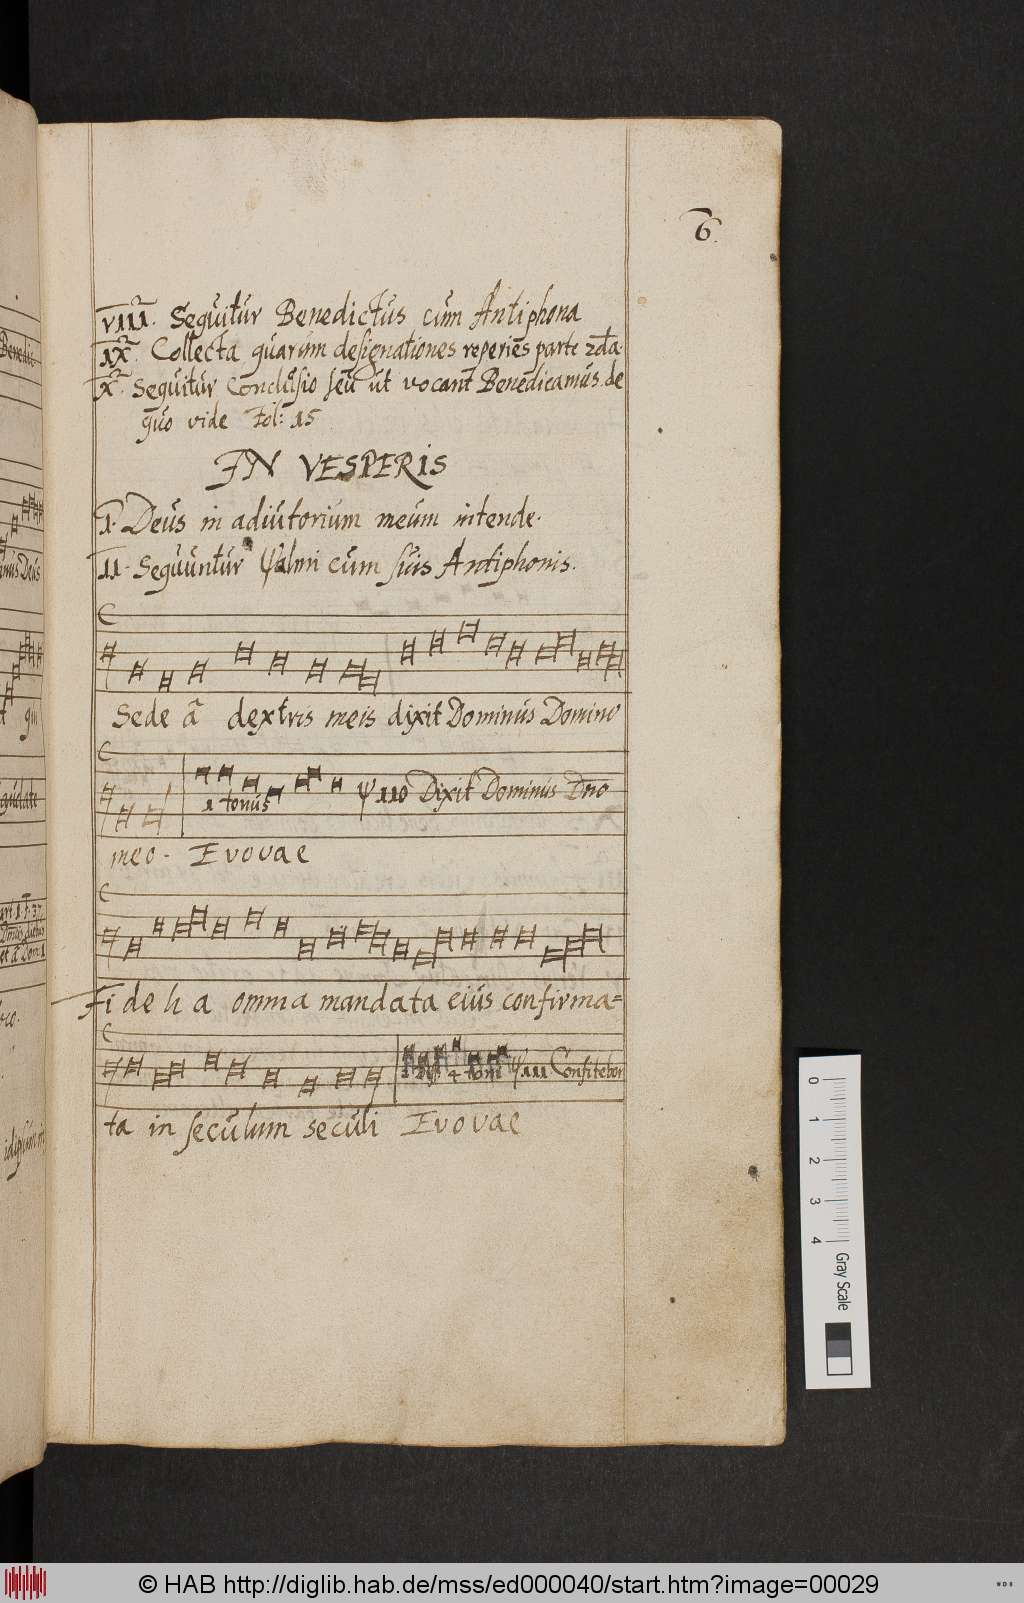 6.
VIII. Sequitur Benedictus cum Antiphona
IX. Collecta quarum designationes reperies parte 2da.
X. Sequitur Conclusio seu ut vocant Benedicamus. de
quo vide fol: 15
IN VESPERIS
I. Deus in adiutorium meum intende.
II. Sequuntur Psalmi cum suis Antiphonis.
Sede a dextris meis dixit Dominus Domino
1 tonus ψ 110 Dixit Dominus Dno
meo. Evovae
Fidelia omnia mandata eius confirma=
4 toni ψ 111. Confitebor
ta in seculum seculi Evovae
Benedic
Deus
qui
0 1 2 3 4 Gray Scale
© HAB http://diglib.hab.de/mss/ed000040/start.htm?image=00029